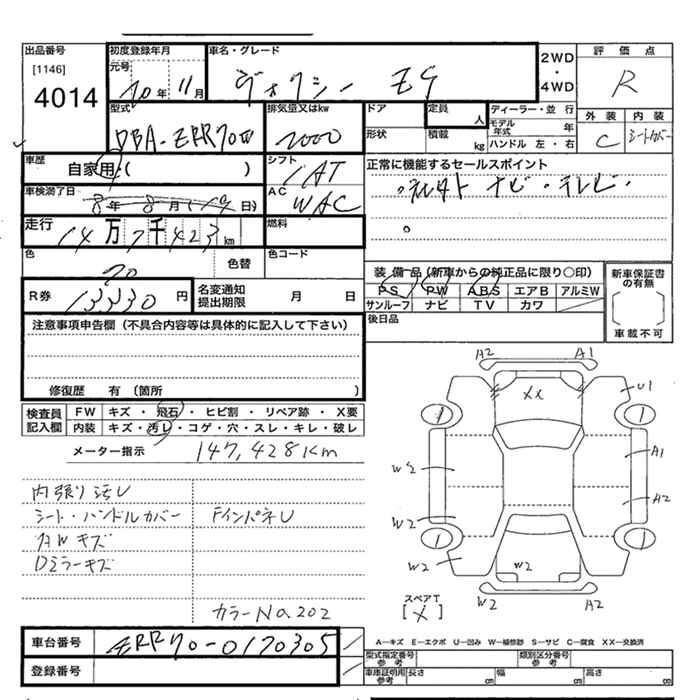 出品番号
[1146]
4014
初度登録年月
元号
20年11月
車名・グレード
ヴォクシー ZG
2WD
・
4WD
評価点
R
外装 内装
C シートカバー
型式
DBA-ZRR70W
排気量又はkw
2000
ドア
形状
定員
人
積載
kg
ディーラー・並行
モデル年式 年
ハンドル 左・右
車歴
自家用・( )
シフト
IAT
車検満了日
8年8月(19日)
AC
WAC
走行
14万7千423km
燃料
色
20
色替
色コード
R券
13330円
名変通知
提出期限
月 日
正常に機能するセールスポイント
ナビ・テレビ
装備品(新車からの純正品に限り○印)
PS PW ABS エアB アルミW
サンルーフ ナビ TV カワ
新車保証書の有無
車載不可
後日品
注意事項申告欄(不具合内容等は具体的に記入して下さい)
修復歴 有(箇所 )
検査員記入欄
FW キズ・飛石・ヒビ割・リペア跡・X要
内装 キズ・汚レ・コゲ・穴・スレ・キレ・破レ
メーター指示 147,428Km
内張り汚レ
シート・ハンドルカバー
FインパネU
AWキズ
Dミラーキズ
カラーNo.202
A2 A1
XX
U1
A1
A2
W2
W2
W2
W2
W2
A2
スペアT
[X]
車台番号
ZRR70-0170305
登録番号
A—キズ E—エクボ U—凹み W—補修跡 S—サビ C—腐食 XX—交換済
型式指定番号
参考
類別区分番号
参考
車庫証明用
参考
長さ cm
幅 cm
高さ cm